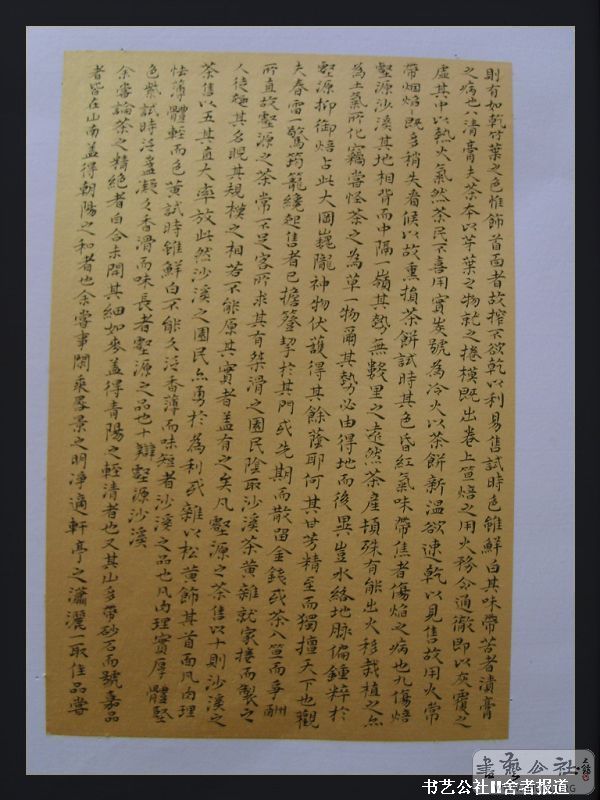 則有如乾竹葉之色惟飾首面者故搾不欲乾以利易售試時色雖鮮白其味帶苦者漬膏
之病也八清膏夫茶本以芽葉之物就之捲模既出卷上笪焙之用火務令通徹即以灰覆之
虛其中以熱火氣然茶民不喜用實炭號為冷火以茶餅新溫欲速乾以見售故用火常
帶烟焰既多稍失看候以故熏損茶餅試時其色昏紅氣味帶焦者傷焰之病也九傷焙
壑源沙溪其地相背而中隔一嶺其勢無數里之遠然茶產頓殊有能出火移栽植之亦
為土氣所化竊嘗怪茶之為草一物爾其勢必由得地而後異豈水絡地脉偏鍾粹於
壑源抑御焙占此大岡巍隴神物伏護得其餘蔭耶何其甘芳精至而獨擅天下也觀
夫春雷一驚筠籠纔起售者已擔簦挈於其門或先期而散留金錢或茶入笪而爭酬
所直故壑源之茶常不足客所求其有桀滑之園民陰取沙溪茶黃雜就家捲而製之
人徒趨其名睨其規模之相若不能原其實者蓋有之矣凡壑源之茶售以十則沙溪之
茶售以五其直大率放此然沙溪之園民亦勇於為利或雜以松黃飾其首面凡肉理
怯薄體輕而色黃試時雖鮮白不能久泛香薄而味短者沙溪之品也凡肉理實厚體堅
色紫試時泛盞凝久香滑而味長者壑源之品也十辯壑源沙溪
余嘗論茶之精絕者白合未開其細如麥蓋得青陽之輕清者也又其山多帶砂石而號嘉品
者皆在山南蓋得朝陽之和者也余嘗事閑乘晷景之明淨適軒亭之瀟灑一取佳品嘗
书艺公社
书艺公社II舍者报道